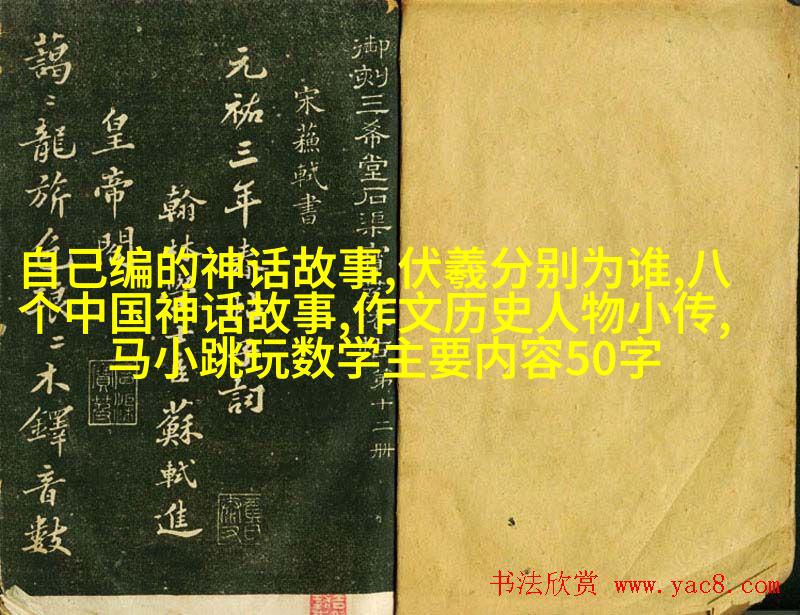 御刻三希堂石渠寶笈法帖第十二册
宋蘇軾書
元祐三年春帖子詞
翰林學士臣蘇軾進
皇帝閣
藹〻龍旂色琅〻木鐸音數
自己编的神话故事,伏羲分别为谁,八
个中国神话故事,作文历史人物小传,
马小跳玩数学主要内容50字
书法欣赏 www.yac8.com